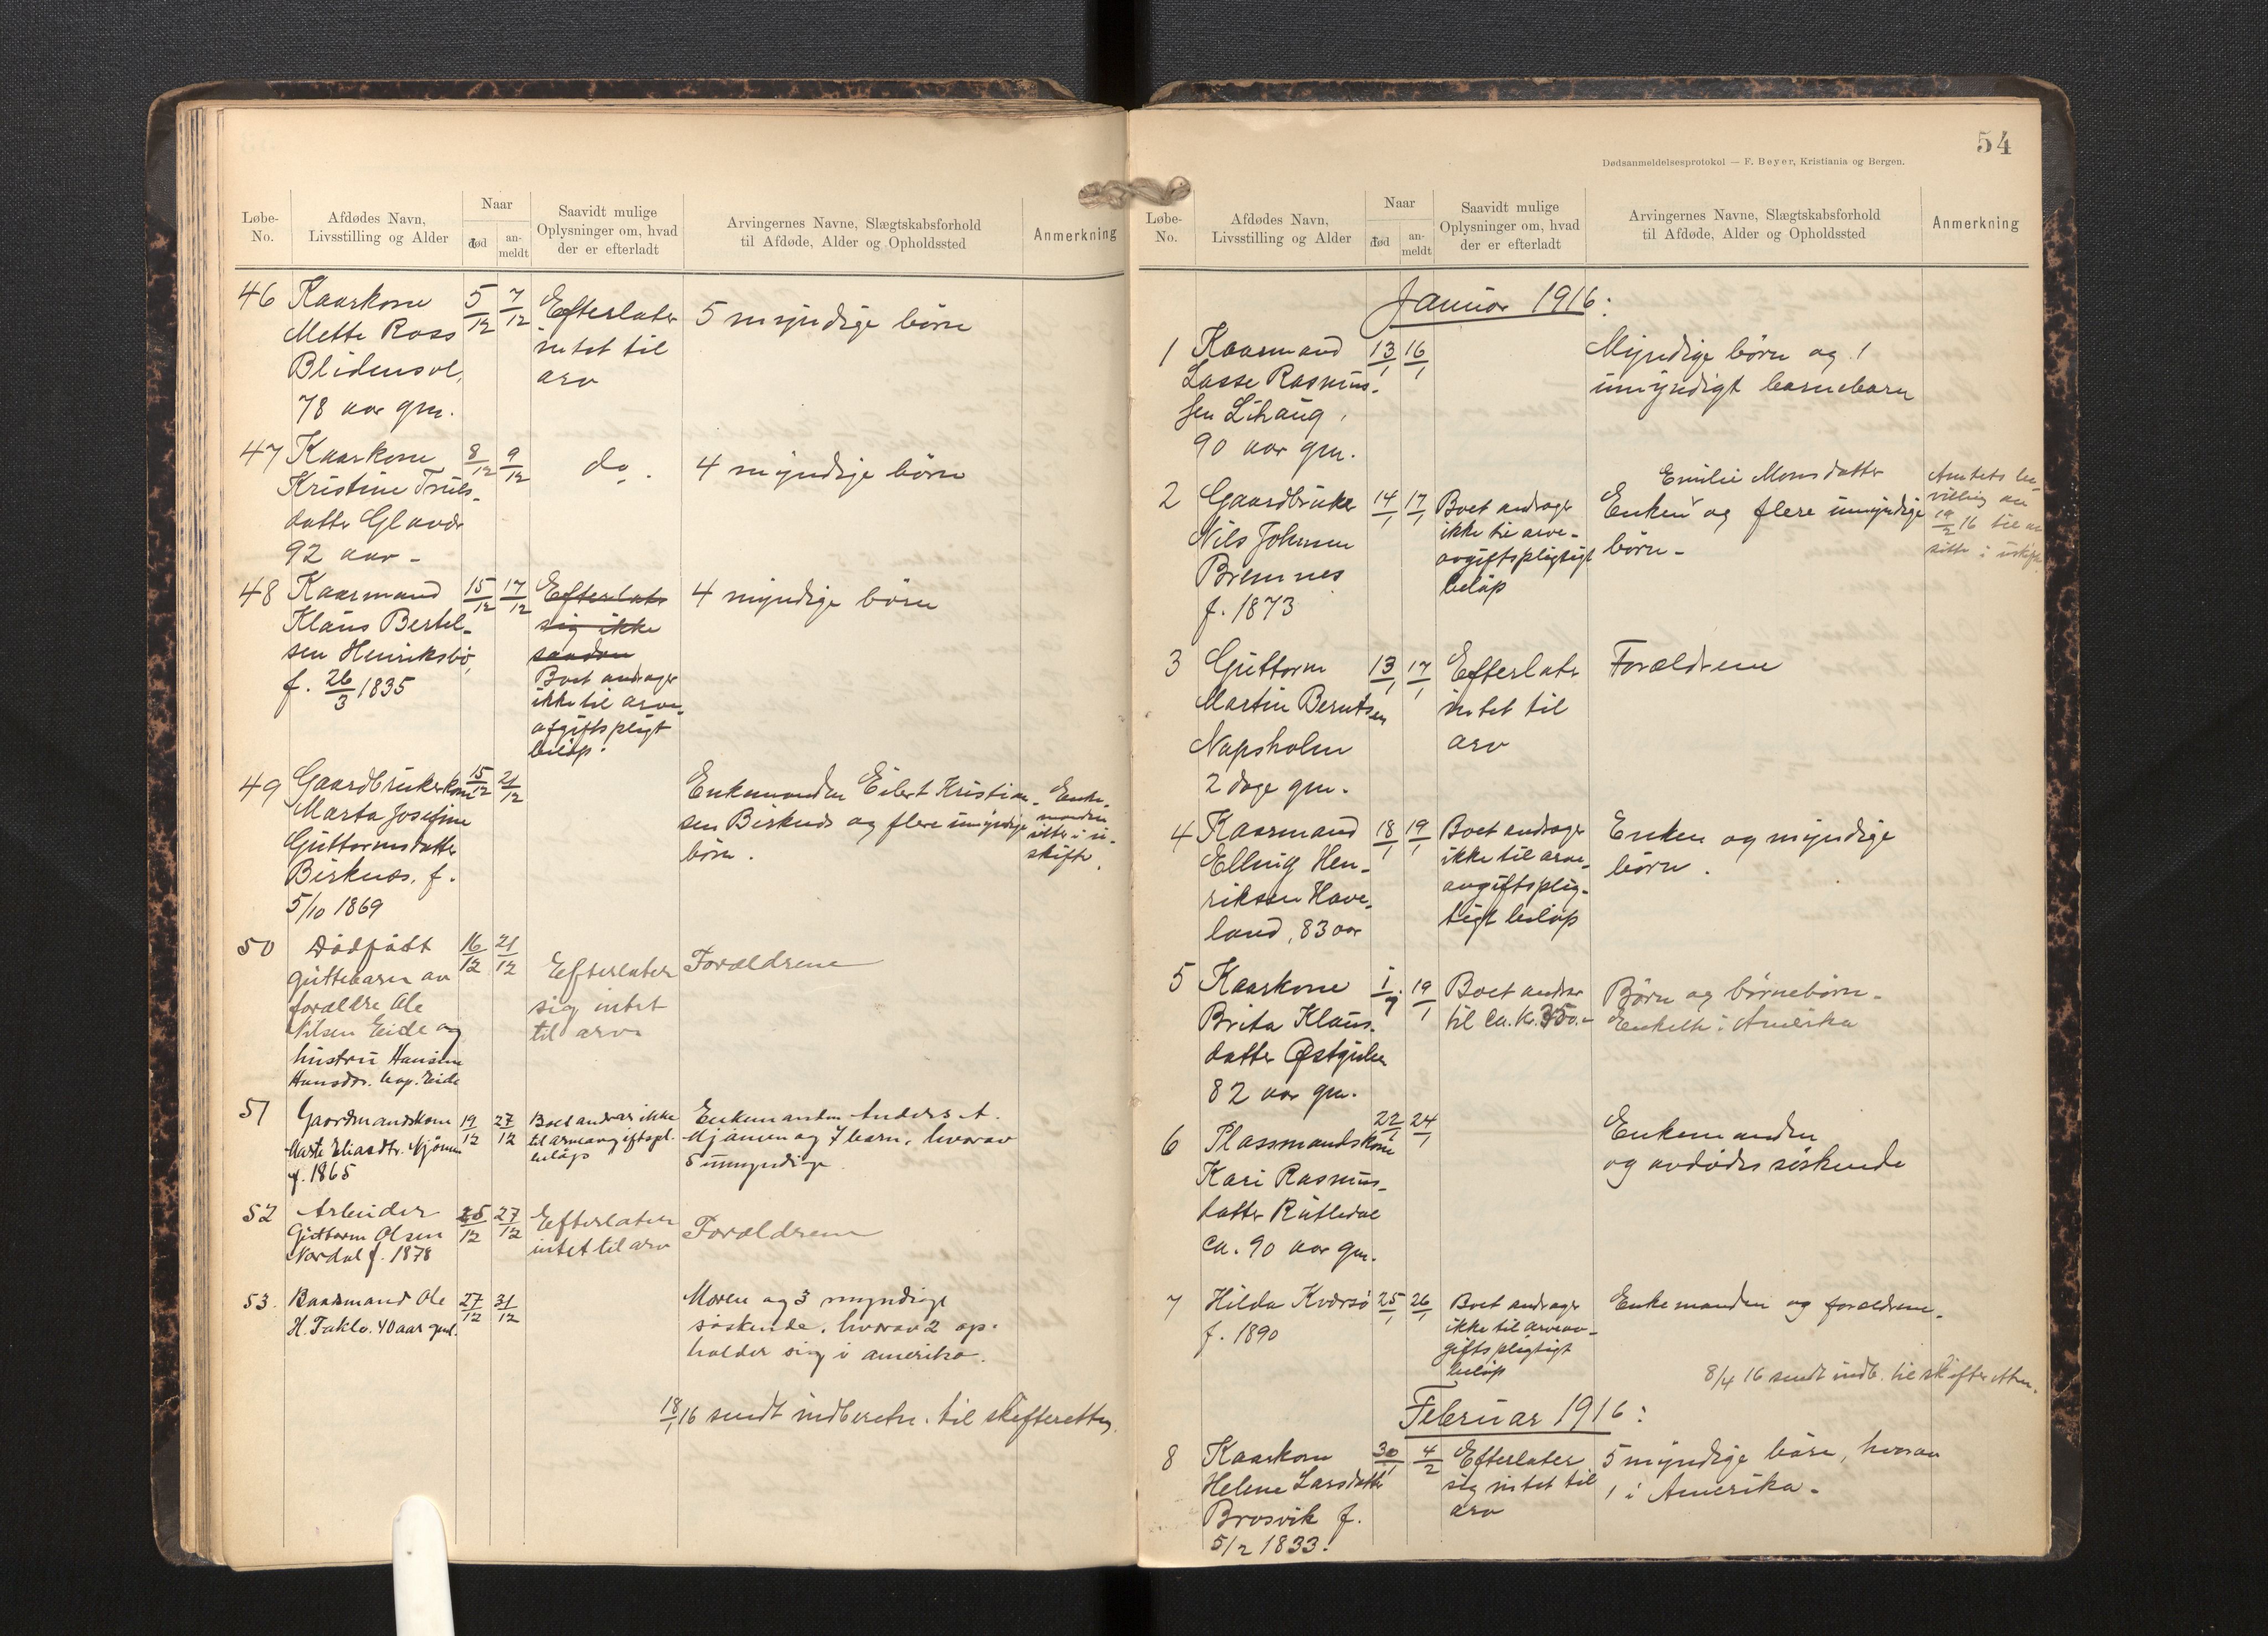 Løbe-
No.
Afdødes Navn,
Livsstilling og Alder
Naar
død
an-
meldt
Saavidt mulige
Oplysninger om, hvad
der er efterladt
Arvingernes Navne, Slægtskabsforhold
til Afdøde, Alder og Opholdssted
Anmerkning
46 Kaarkone 5/12 7/12 Efterlater 5 myndige børn
Mette Ross intet til
Blidensol, arv
78 aar gm.
47 Kaarkone 8/12 9/12 do. 4 myndige børn
Kristine Truls-
datter Glavær
92 aar -
48 Kaarmand 15/12 17/12 Efterlater 4 myndige børn
Klaus Bertel- sig ikke
sen Henriksbø,
f. 26/3 1835 Boet andrager
ikke til arve-
afgiftspligt
beløp.
49 Gaardbrukerkone 15/12 21/12 Enkemanden Eilert Kristian- Enke-
Marta Josefine sen Birknes og flere umyndige manden
Guttormsdatter børn. sitter i u-
Birknes, f. skifte.
5/10 1869
50 Dødfødt 16/12 21/12 Efterlater Forældrene
guttebarn av sig intet
forældre Ole til arv
Nilsen Eide og
hustru Hansine
Hansdr. Eide
51 Gaardmandskone 19/12 27/12 Boet andrar ikke Enkemanden Anders A.
Marte Eliasdtr. Mjømen til arveavgiftspl. Mjømen og 7 barn, hvorav
f. 1865 beløp 5 umyndige.
52 Arbeider 25/12 27/12 Efterlater Forældrene
Guttorm Olsen intet til arv
Nordal f. 1878
53. Baadsmand Ole 27/12 31/12 Moren og 3 myndige
H. Takle. 40 aar gml. søskende, hvorav 2 op-
holder sig i amerika.
18/1 16 sendt indberetn. til skifteretten
54
Dødsanmeldelsesprotokol — F. Beyer, Kristiania og Bergen.
Løbe-
No.
Afdødes Navn,
Livsstilling og Alder
Naar
død
an-
meldt
Saavidt mulige
Oplysninger om, hvad
der er efterladt
Arvingernes Navne, Slægtskabsforhold
til Afdøde, Alder og Opholdssted
Anmerkning
Januar 1916:
1 Kaarmand 13/1 16/1 Myndige børn og 1
Lasse Rasmus- umyndigt barnebarn
sen Lihaug,
90 aar gm.
Emilie Monsdatter Amtets be-
2 Gaardbruker 14/1 17/1 Boet andrager Enken og flere umyndige villing av
Nils Johnsen ikke til arve- børn - 19/2 16 til at
Bremnes avgiftspligtigt sitte i uskifte
f. 1873 beløp
3 Guttorm 13/1 17/1 Efterlater Forældrene
Martin Berntsen intet til
Napsholm arv
2 dage gm.
4 Kaarmand 18/1 19/1 Boet andrager Enken og myndige
Elling Hen- ikke til arve- børn.
riksen Have- avgiftsplig-
land, 83 aar tigt beløp
5 Kaarkone 19/1 Boet andrar Børn og børnebørn -
Brita Klaus- til ca. kr. 350.- Enkelte i Amerika
datter Østgulen
82 aar gm.
6 Plassmandskone 22/1 24/1 Enkemanden
Kari Rasmus- og avdødes søskende
datter Rutledal
ca. 90 aar gm.
7 Hilda Kversø 25/1 26/1 Boet andrager Enkemanden og forældrene.
f. 1890 ikke til arveav-
giftspligtigt
beløp
8/4 16 sendt indb. til skifteretten.
Februar 1916:
8 Kaarkone 30/1 4/2 Efterlater 5 myndige børn, hvorav
Helene Larsdatter sig intet til 1 i Amerika -
Brosvik f. arv
5/2 1833.